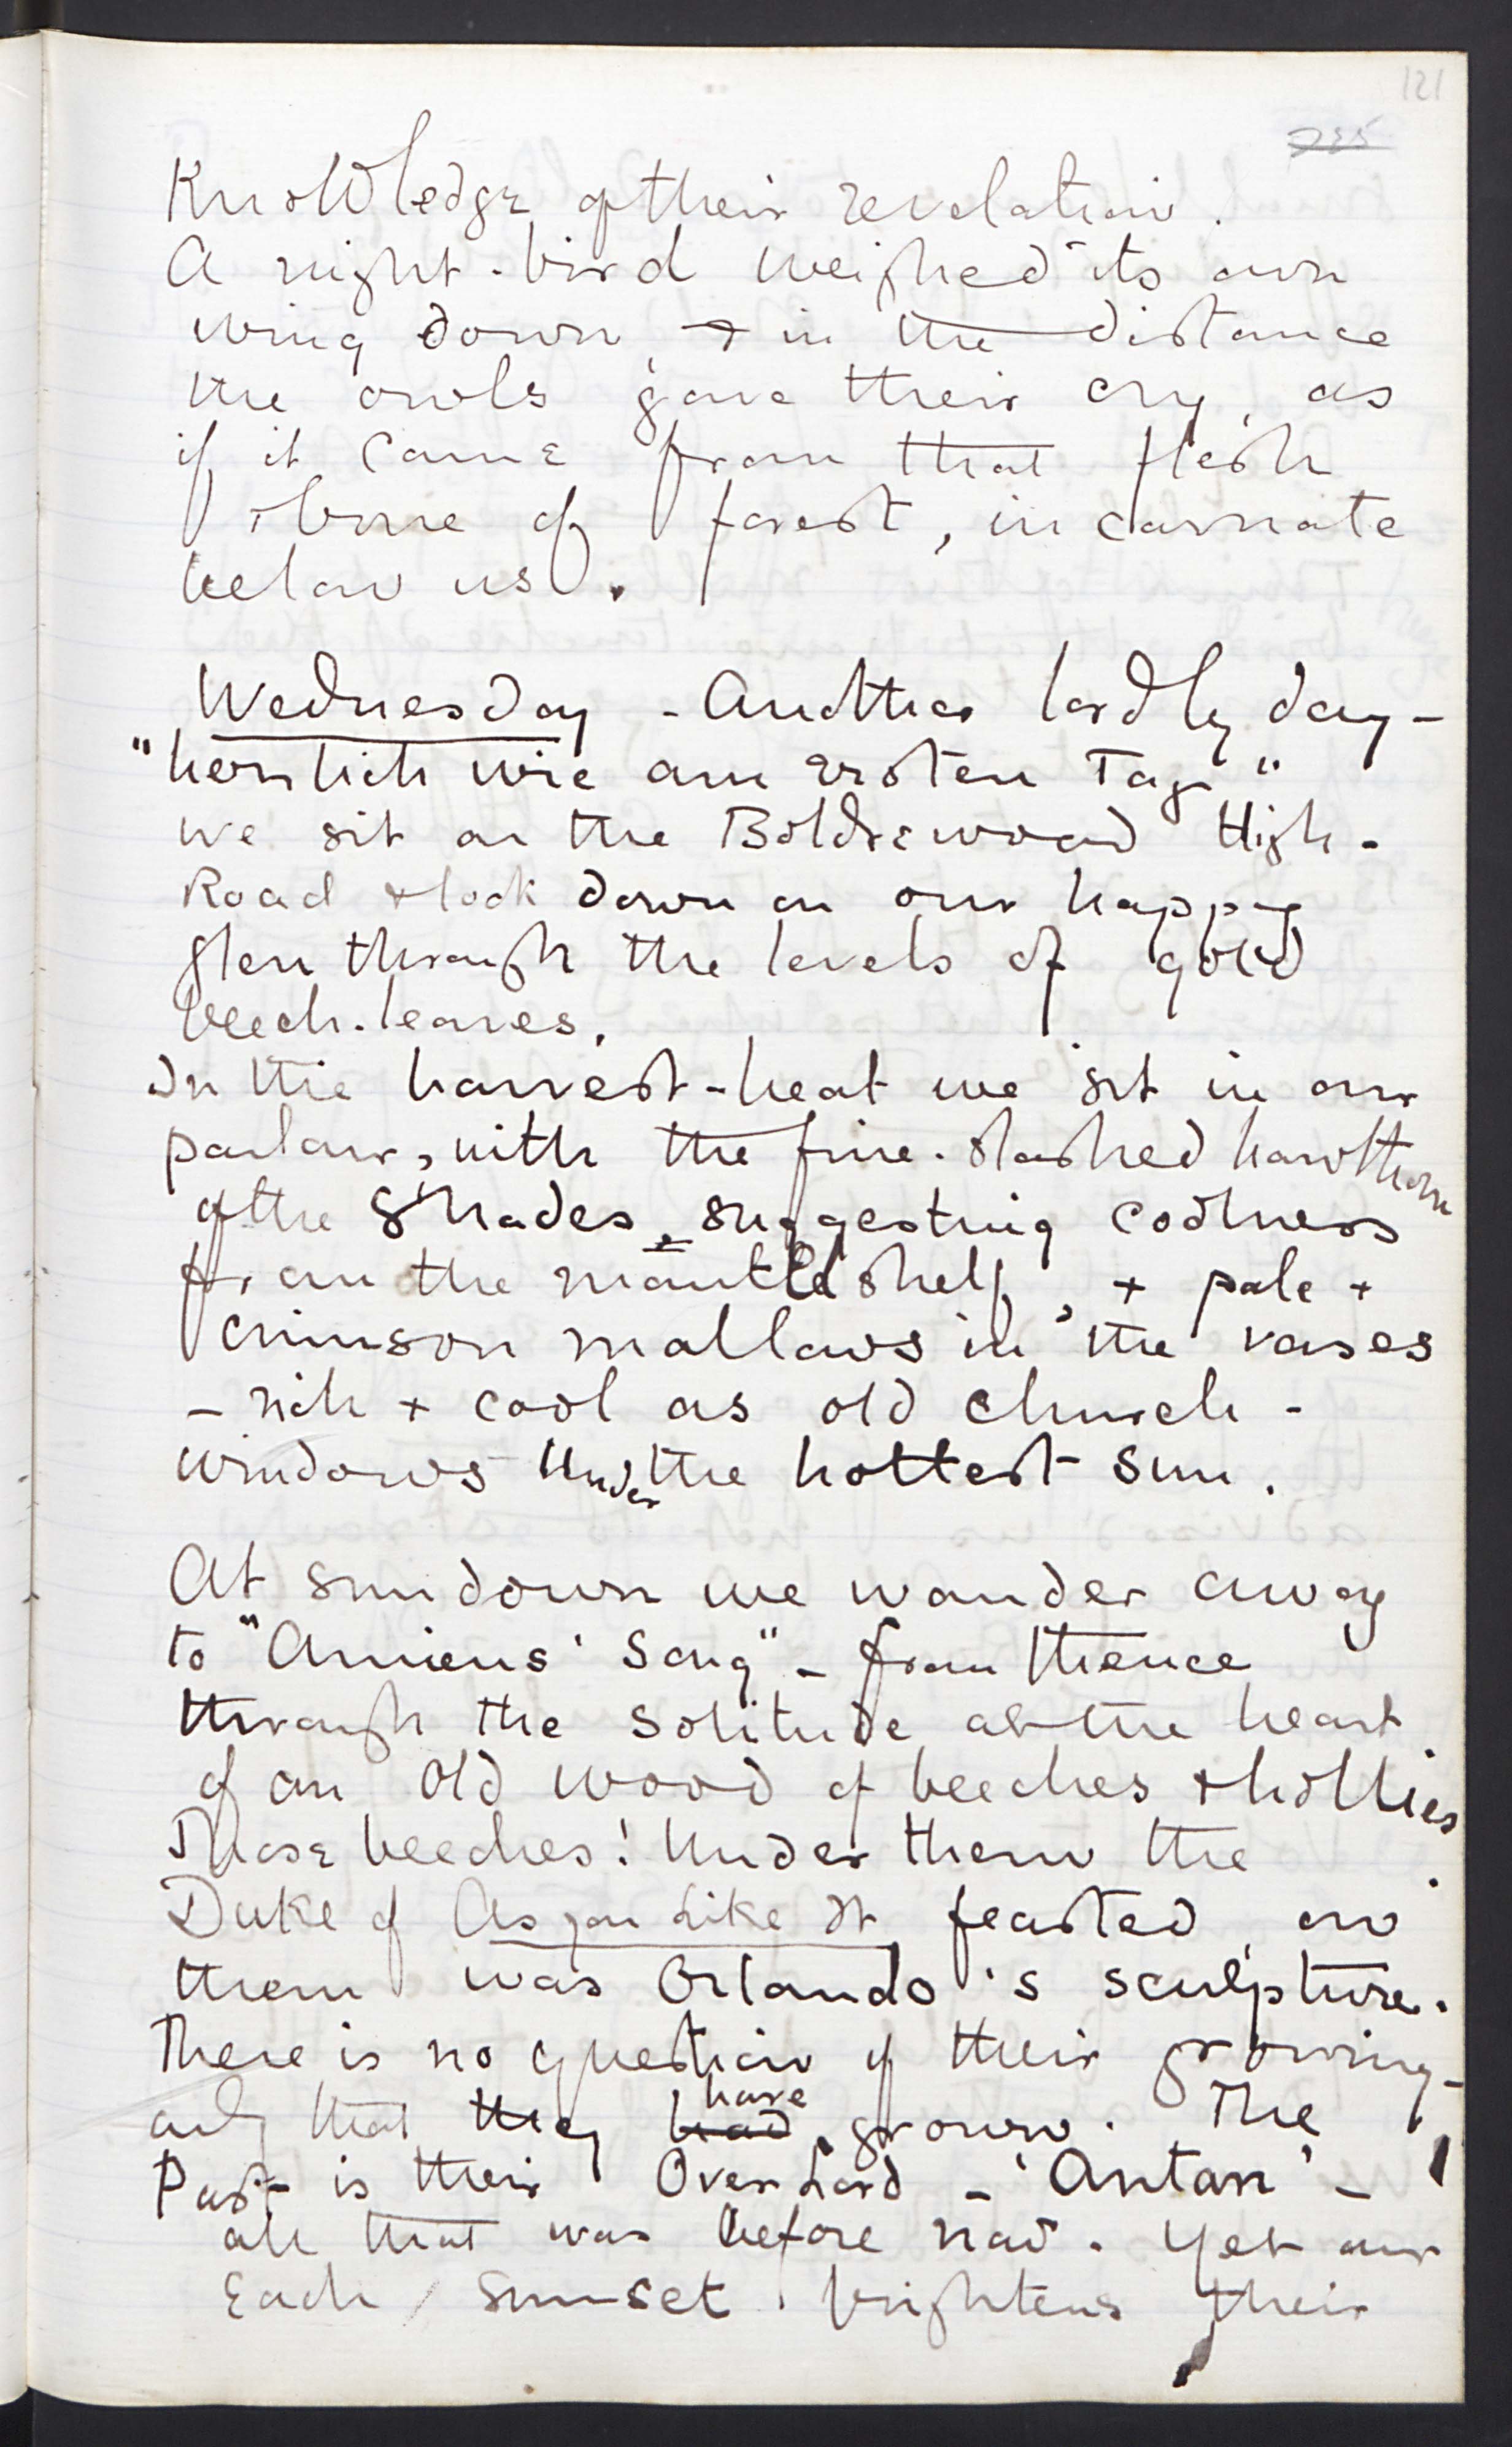 121
235
Knowledge of their revelation.
A night-bird weighed its own
wing down, & in the distance
the owls gave their cry, as
if it came from that flesh
& bone of forest, incarnate
below us.
Wednesday - Another lordly day -
"herrlich wie am ersten Tag"
we sit on the Boldrewood High-
Road & look down on our happy
glen through the levels of gold
beech-leaves.
In the harvest-heat we sit in our
parlour, with the fine-slashed hawthorn
of the Shades, suggesting coolness
from the mantel shelf, + pale +
crimson mallows in the vases
- rich + cool as old church-
windows under the hottest sun.
At sundown we wander away
to "Amiens' Song" - from thence
through the solitude at the heart
of an old wood of beeches & hollies.
Those beeches! Under them the
Duke of As you Like It feasted, on
them was Orlando's sculpture.
There is no question of their growing -
only that they had have grown. The
Past is their Over Lord - 'Antan' -
all that was before now. Yet our
Each sun-set brightens their